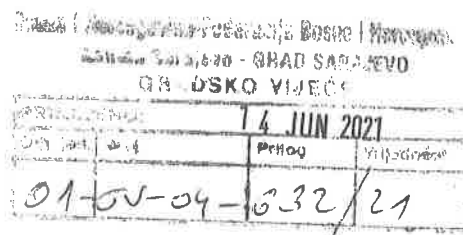 Bosna i Hercegovina Federacija Bosne i Hercegovine
Kanton Sarajevo - GRAD SARAJEVO
GRADSKO VIJEĆE
14 JUN 2021
Prilog Vrijednost
01-GV-04-632/21